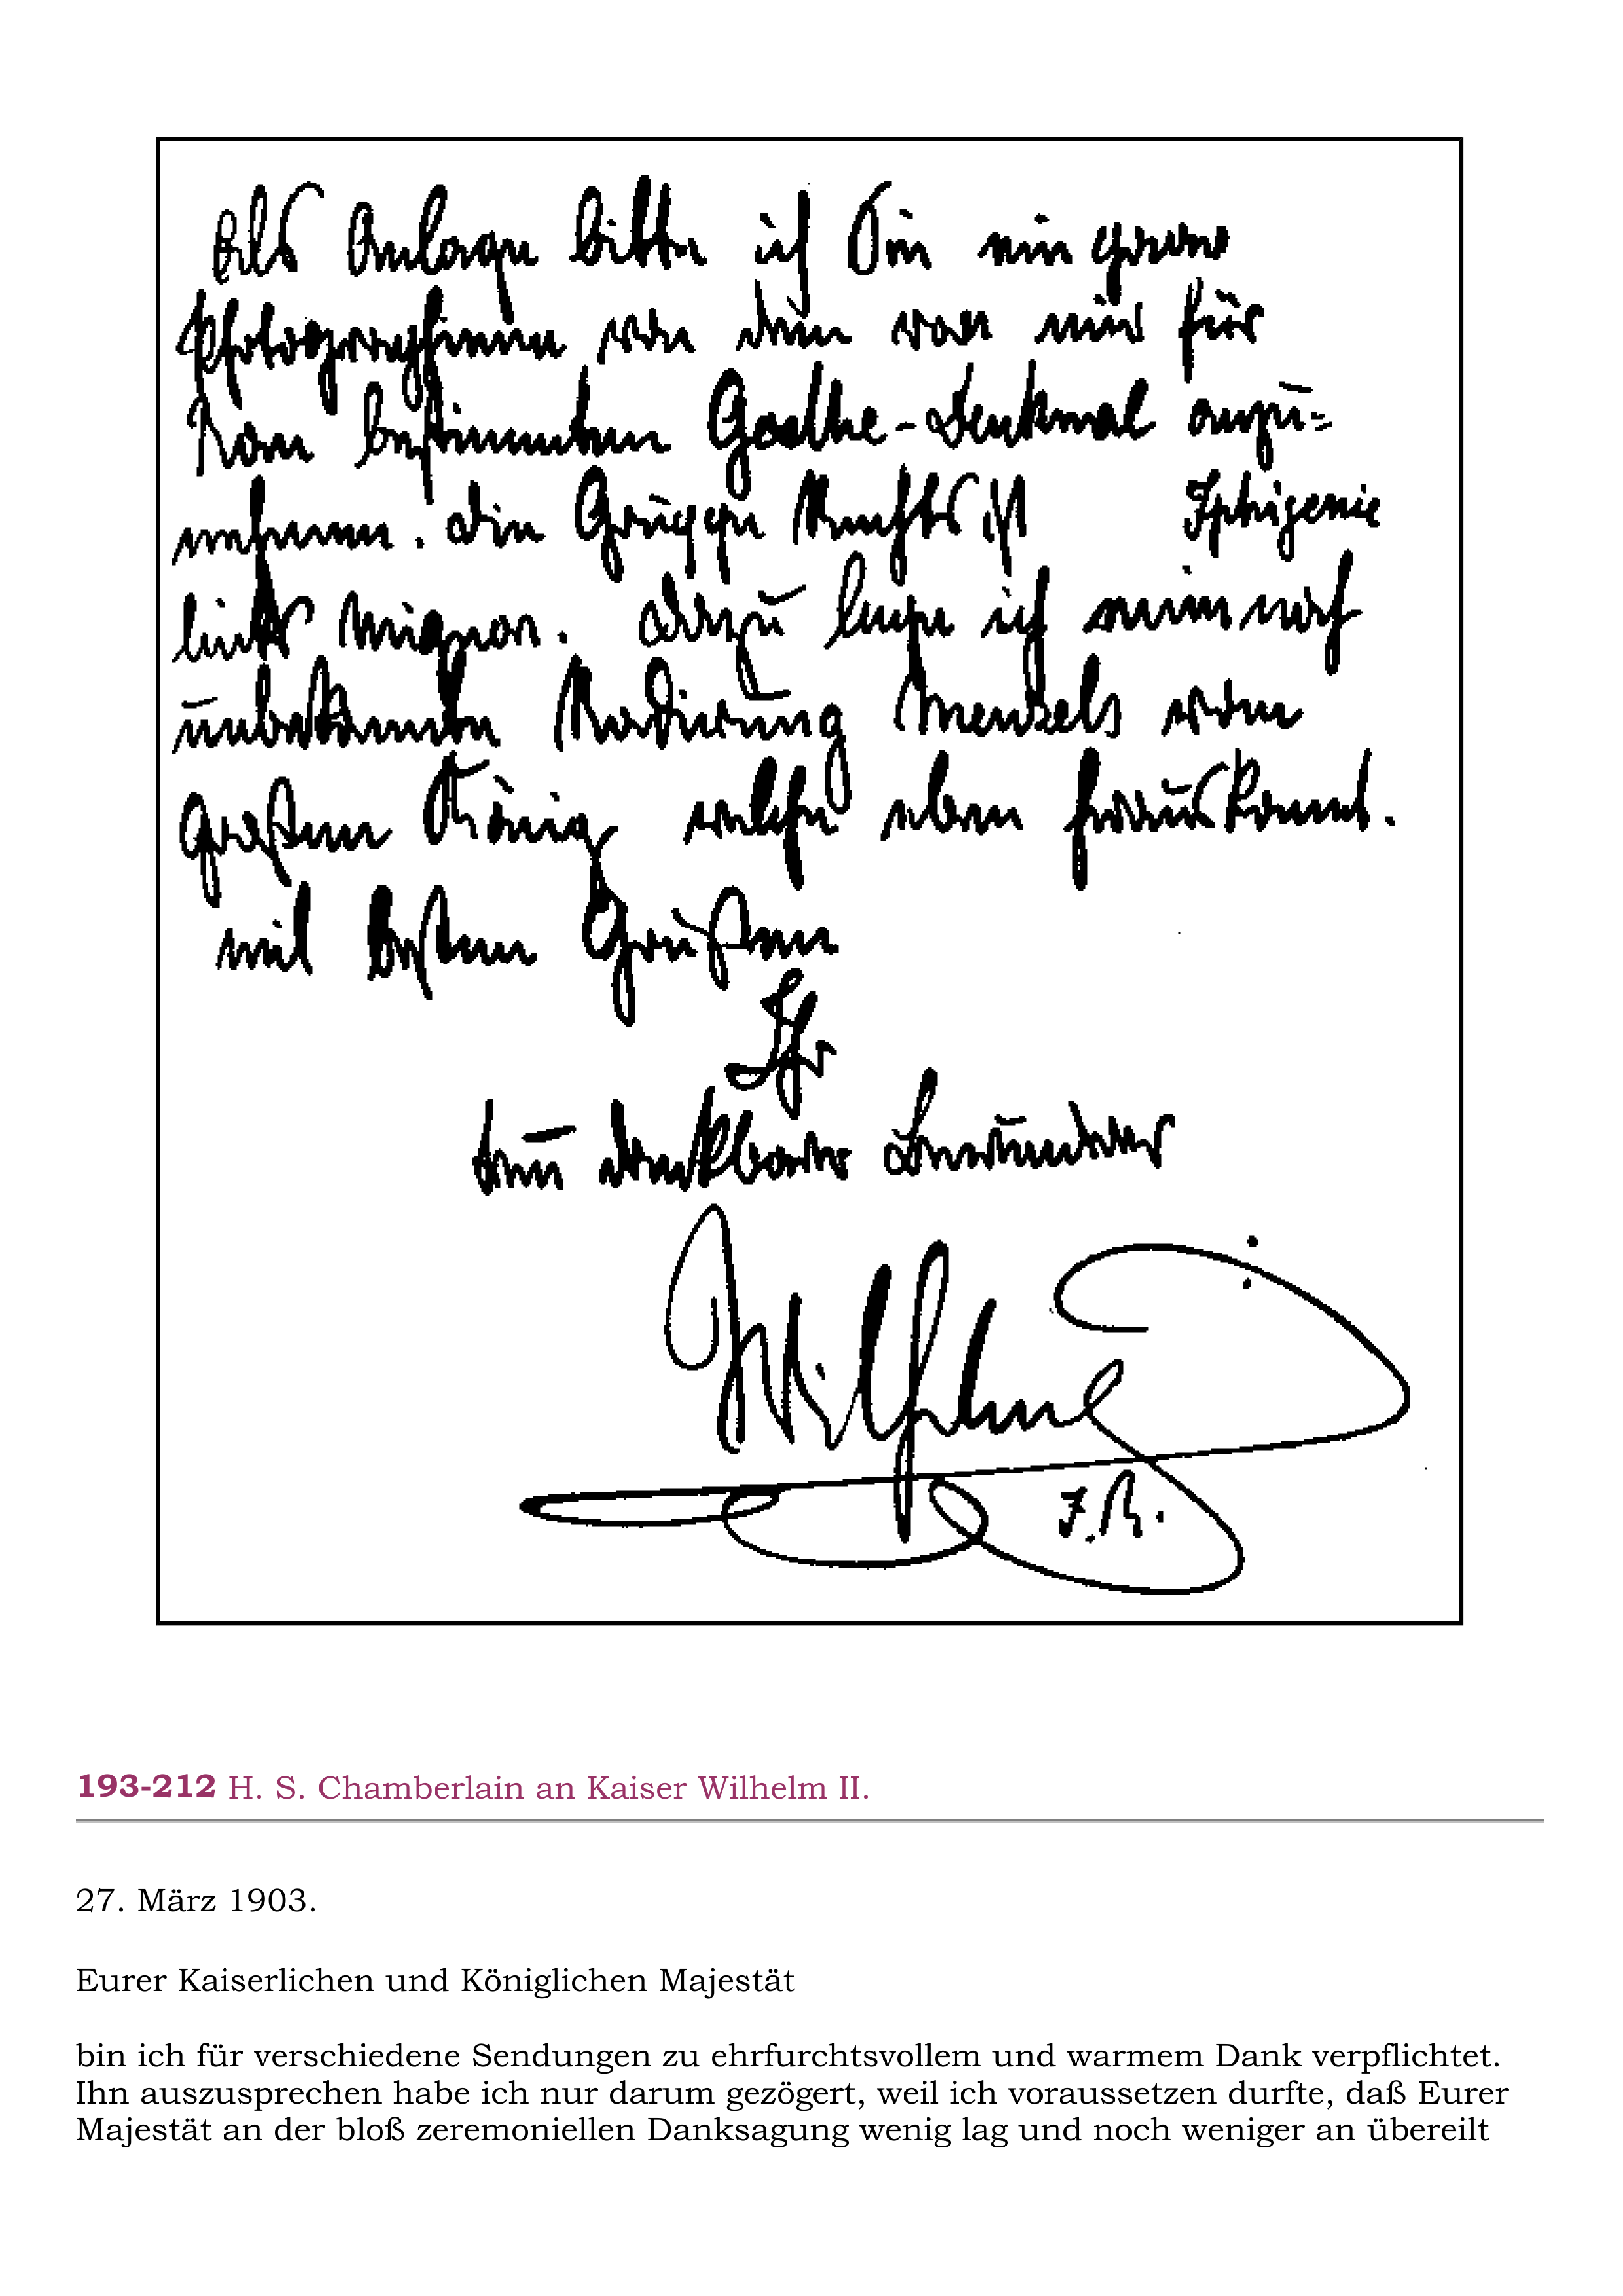 Als Anlage bitte ich Sie ein paar
Photographieen von dem von mir für
Rom bestimmten Goethe-Denkmal anzu-
nehmen. Die Gruppe rechts ist Iphigenie
links Mignon. Dazu lege ich eine noch
unbekannte Radierung Menzels vom
großen König welche eben herauskommt.
Mit besten Grüßen
Ihr
treu dankbarer Bewunderer
Wilhelm
I.R.
193-212 H. S. Chamberlain an Kaiser Wilhelm II.
27. März 1903.
Eurer Kaiserlichen und Königlichen Majestät
bin ich für verschiedene Sendungen zu ehrfurchtsvollem und warmem Dank verpflichtet.
Ihn auszusprechen habe ich nur darum gezögert, weil ich voraussetzen durfte, daß Eurer
Majestät an der bloß zeremoniellen Danksagung wenig lag und noch weniger an übereilt